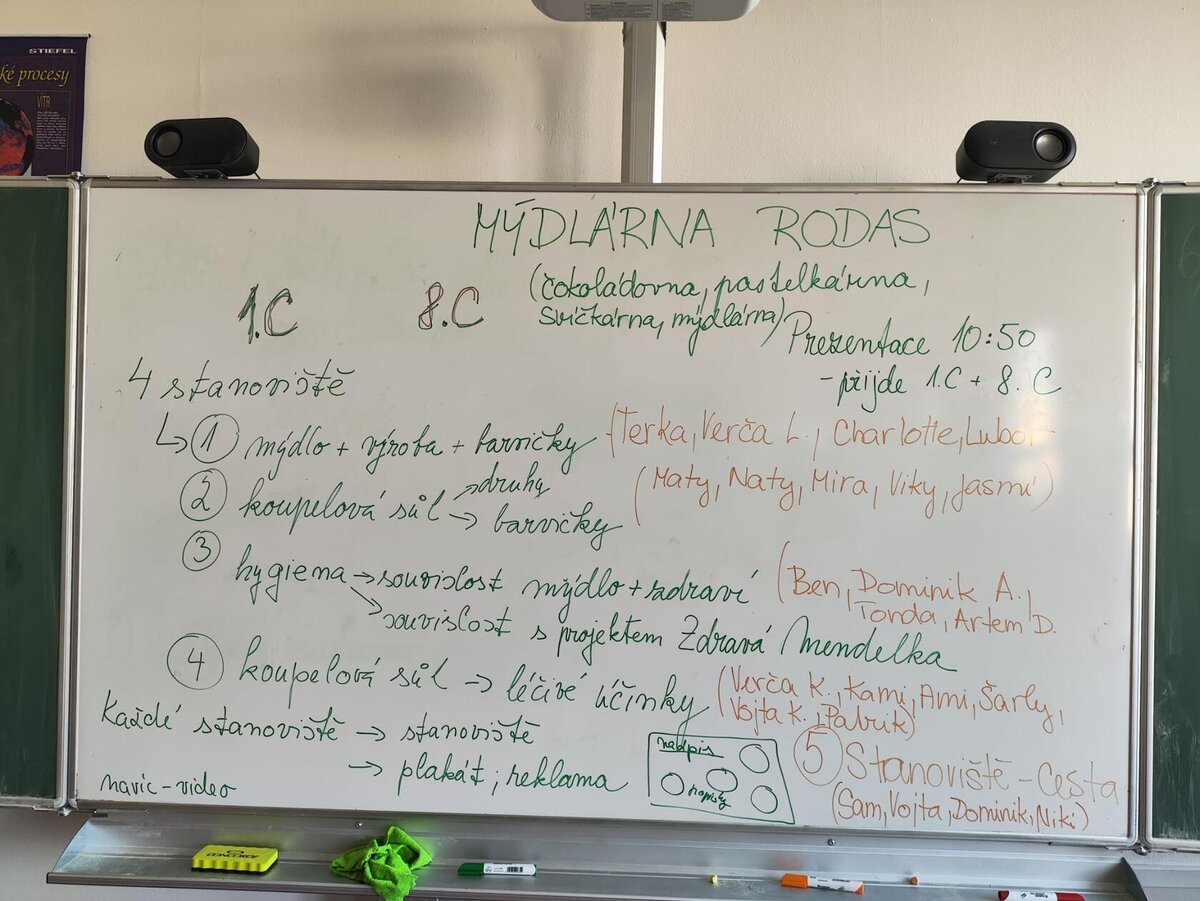 STIEFEL
ké procesy
VÍTR
MÝDLÁRNA RODAS
(čokoládovna, pastelkárna,
svíčkárna, mýdlárna)
1.C 8.C
Prezentace 10:50
- přijde 1.C + 8.C
4 stanoviště
↳ 1 mýdlo + výroba + barvičky (Terka, Verča L., Charlotte, Lubor
2 koupelová sůl → druhy (Maty, Naty, Mira, Viky, Jasmí)
→ barvičky
3 hygiena → souvislost mýdlo + zdraví (Ben, Dominik A.,
Tonda, Artem D.
→ souvislost s projektem Zdravá Mendelka
4 koupelová sůl → léčivé účinky (Verča K., Kami, Ami, Šarly,
Vojta K., Patrik)
Každé stanoviště → stanoviště
→ plakát; reklama
navíc - video
nadpis
nápisy
5 Stanoviště - Cesta
(Sam, Vojta, Dominik, Niki)
CONCORDE